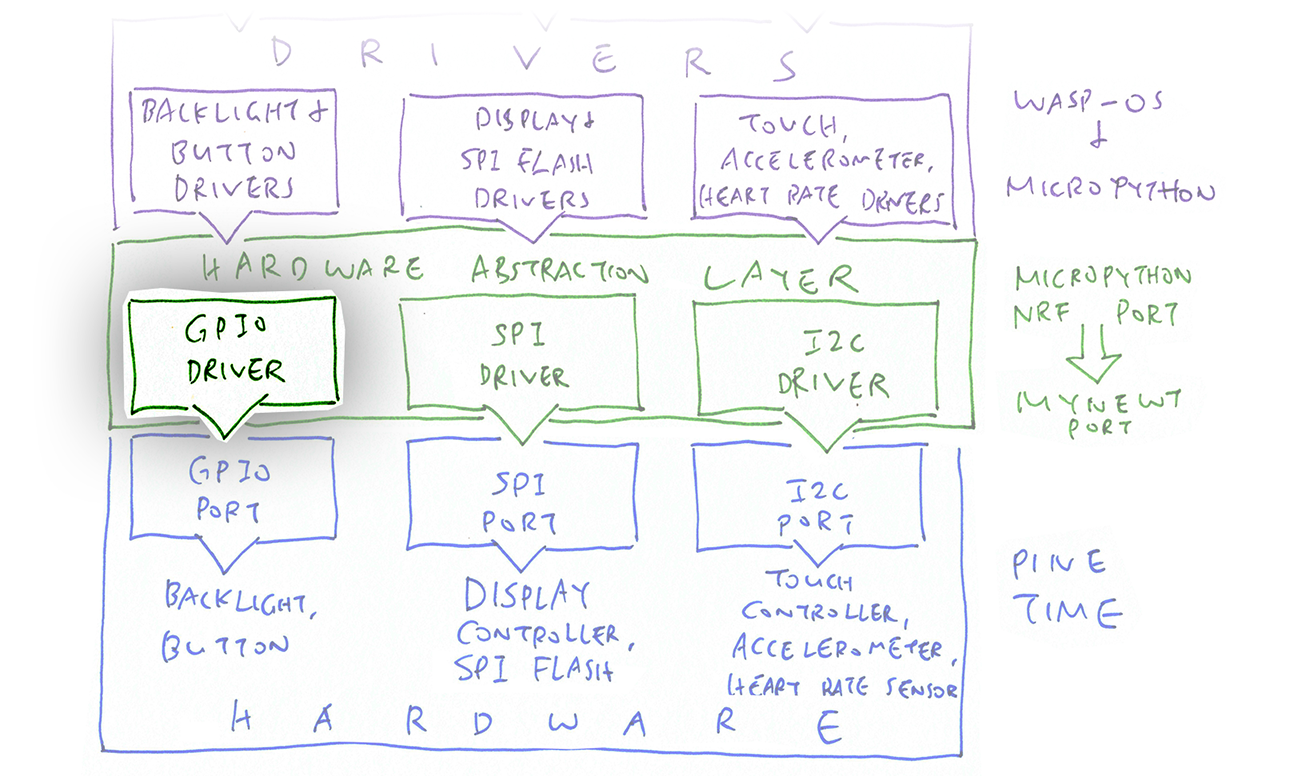 DRIVERS
BACKLIGHT &
BUTTON
DRIVERS
DISPLAY &
SPI FLASH
DRIVERS
TOUCH,
ACCELEROMETER,
HEART RATE DRIVERS
WASP-OS
+
MICROPYTHON
HARDWARE ABSTRACTION LAYER
GPIO
DRIVER
SPI
DRIVER
I2C
DRIVER
MICROPYTHON
NRF PORT
MYNEWT
PORT
GPIO
PORT
SPI
PORT
I2C
PORT
BACKLIGHT,
BUTTON
DISPLAY
CONTROLLER,
SPI FLASH
TOUCH
CONTROLLER,
ACCELEROMETER,
HEART RATE SENSOR
PINE
TIME
HARDWARE